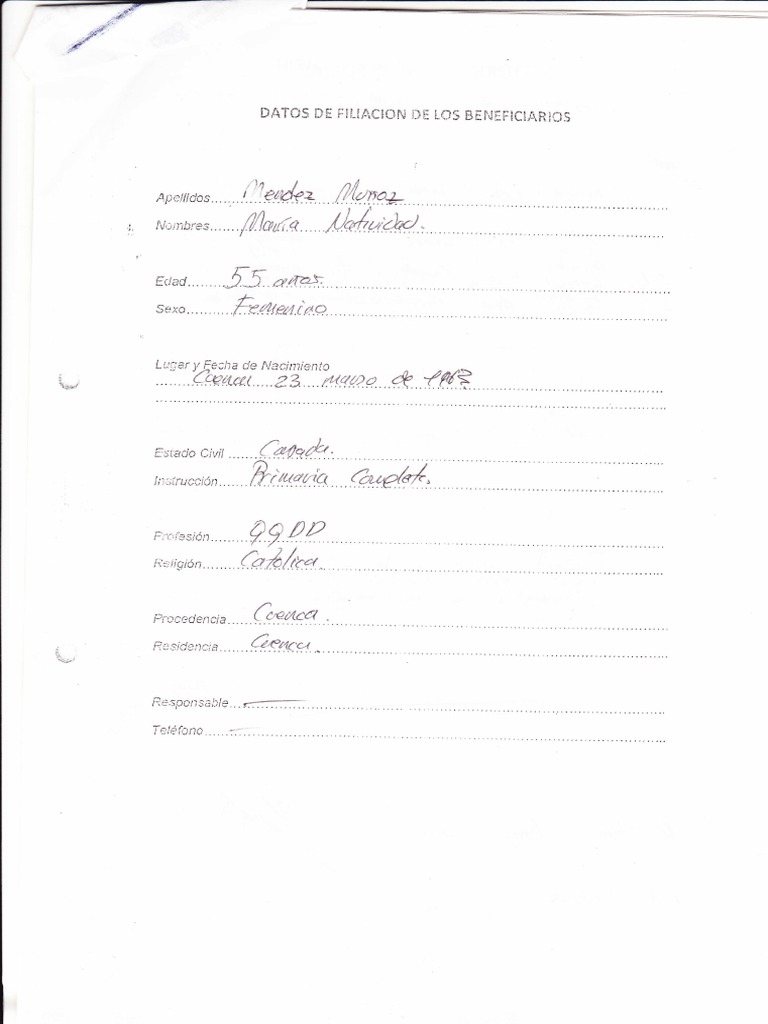 DATOS DE FILIACION DE LOS BENEFICIARIOS
Apellidos...... Mendez Munoz
Nombres...... Maria Natividad.
Edad...... 55 anos.
Sexo...... Femenino
Lugar y Fecha de Nacimiento
Cuenca 23 marzo de 1963
Estado Civil ...... Casada.
Instrucción...... Primaria Completa.
Profesión...... QQDD
Religión...... Católica.
Procedencia...... Cuenca.
Residencia...... Cuenca.
Responsable...... —
Teléfono...... —